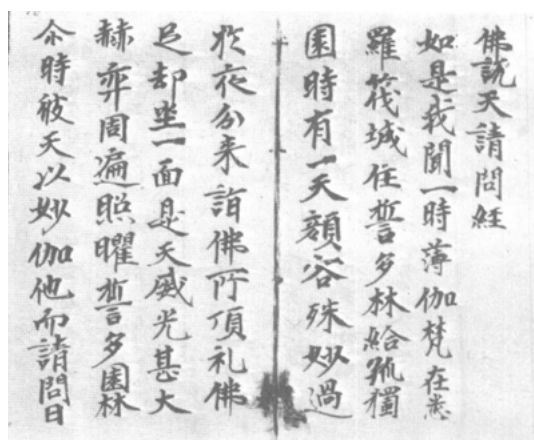 佛說天請問經
如是我聞一時薄伽梵在悉
羅筏城住誓多林給孤獨
園時有一天顏容殊妙過
於夜分来詣佛所頂礼佛
足却坐一面是天威光甚大
赫弈周遍照曜誓多園林
尒時彼天以妙伽他而請問曰